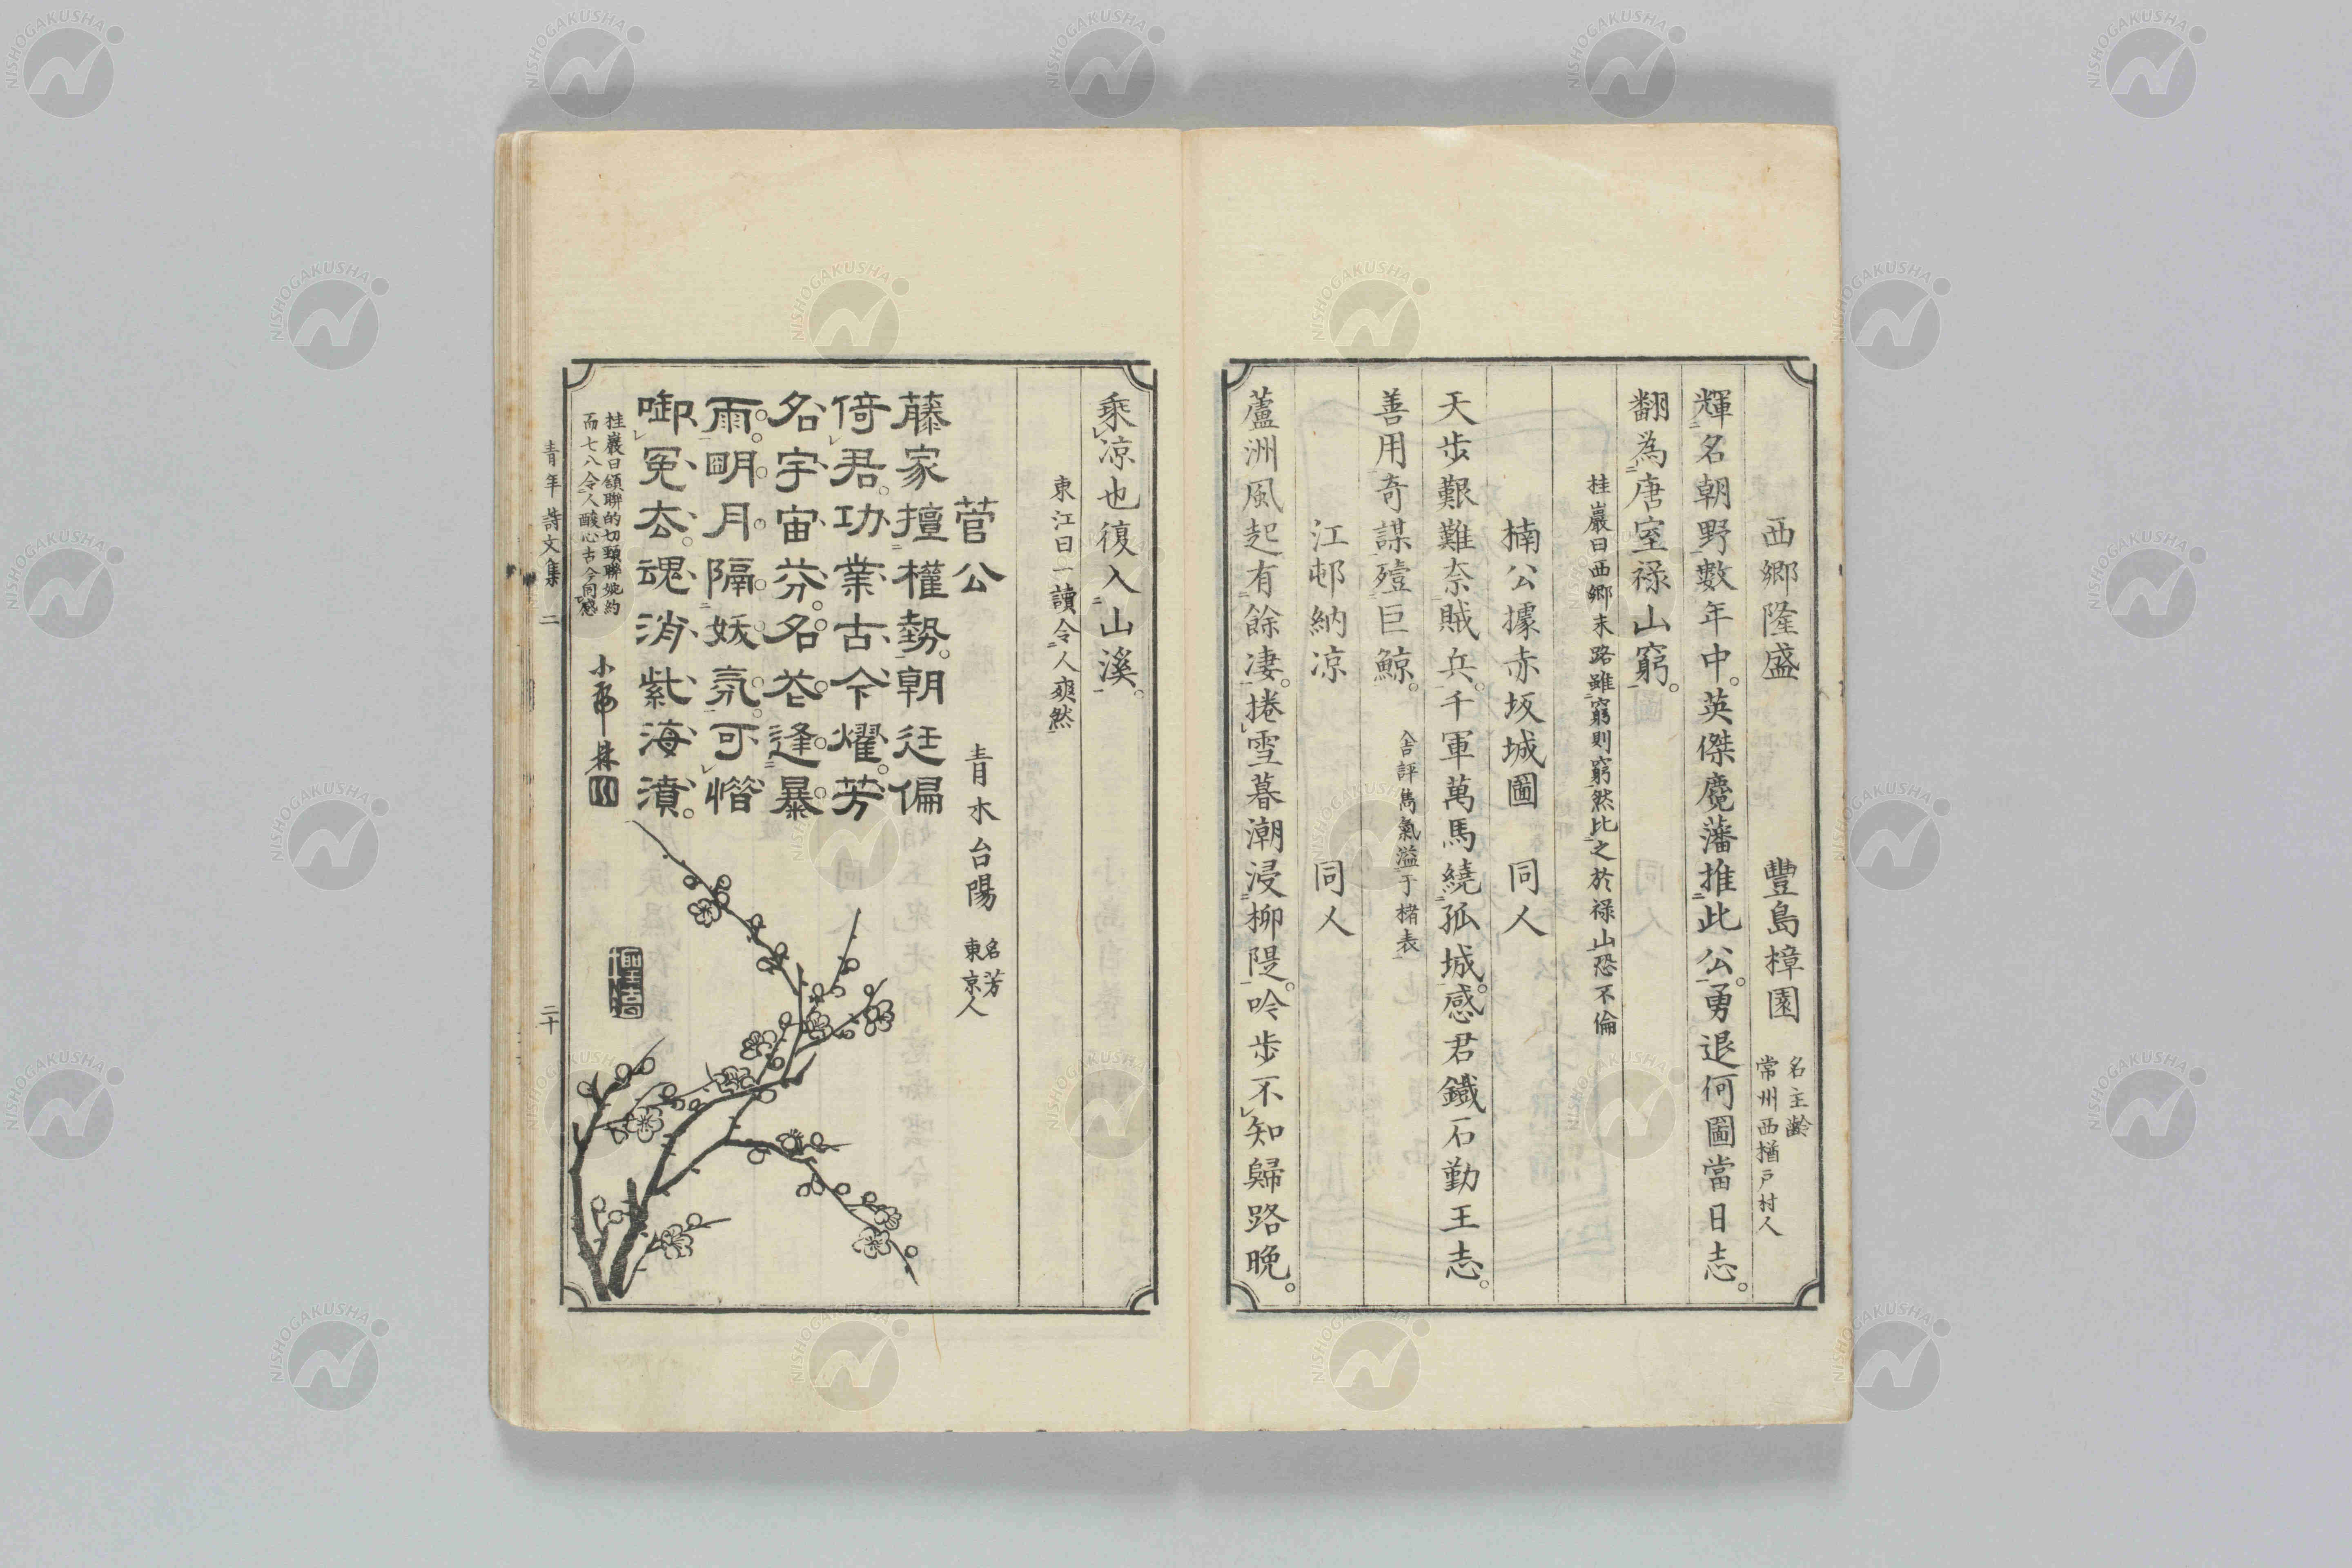 西郷隆盛 豐島樟園 名主齡 常州西楢戸村人
輝名朝野數年中。英傑魔藩推此公。勇退何圖當日志。
翻為唐室祿山窮。
桂巖曰西郷末路雖窮則窮然比之於祿山恐不倫
楠公據赤坂城圖 同人
天步艱難奈賊兵。千軍萬馬繞孤城。感君鐵石勤王志。
善用奇謀殪巨鯨。 評雋氣溢于楮表
江邨納凉 同人
蘆洲風起有餘凄。捲雪暮潮浸柳隄。吟步不知歸路晩。
乘凉也復入山溪。
東江曰一讀令人爽然
菅公 青木台陽 名芳 東京人
藤家擅權勢。朝廷偏
倚君。功業古今燿。芳
名宇宙芬。名花逢暴
雨。明月隔妖氛。可惜
啣冤去。魂消紫海濆。
桂巖曰頷聯的切頸聯婉約
而七八令人酸心古今同感
青年詩文集 二 二十
NISHOGAKUSHA